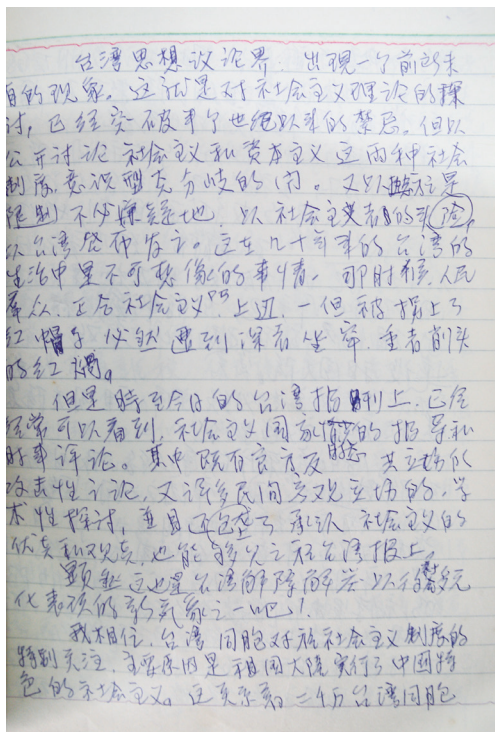 台湾思想议论界,出现一个前所未
有的现象。这就是对社会主义理论的探
讨,已经突破半个世纪以来的禁忌。但以
公开讨论社会主义和资本主义这两种社会
制度,意识型态分歧的
不必嫌疑地,以社会主义者的
以台湾发而发言。这在几十年来的台湾的
生活中是不可想像的事情。那时候,人民
群众,在"社会主义"上边,一但被摸上了
红帽子,必然遭到深者坐牢,重者削头
的红祸。
但是时至今日的台湾报刊上,已经
经常可以看到,社会主义国家的报导和
时事评论。其中既有敌意反共立场的
攻击性言论,又许多民间客观立场的,学
术性探讨,并且还包含了承认社会主义的
优点和观点,也能够见之在台湾报上。
显然这也是台湾解除解严以后多元
化表现的新气象之一吧!
我相信,台湾同胞对于社会主义制度的
特别关注,主要原因是祖国大陆实行了中国特
色的社会主义。这关系到二千万台湾同胞